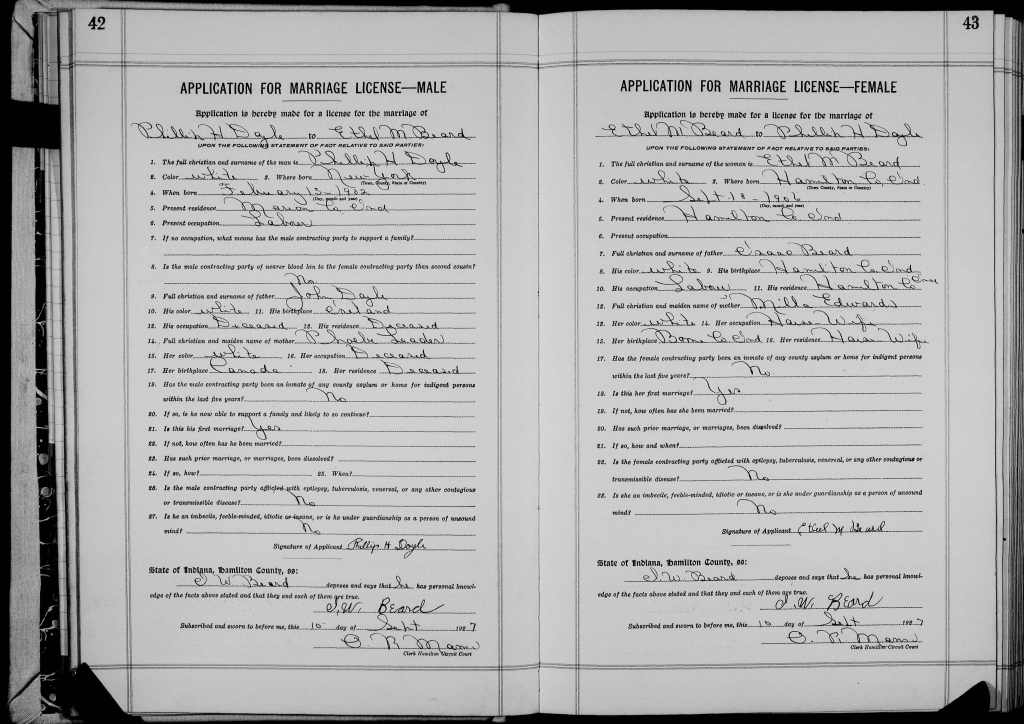 42
APPLICATION FOR MARRIAGE LICENSE—MALE
Application is hereby made for a license for the marriage of
Phillip H Doyle to Ethel M Beard
UPON THE FOLLOWING STATEMENT OF FACT RELATIVE TO SAID PARTIES:
1. The full christian and surname of the man is Phillip H Doyle
2. Color white 3. Where born New-York
(Town, County, State or Country)
4. When born February 13-1902
(Day, month and year)
5. Present residence Marion Co, Ind
6. Present occupation Labour
7. If no occupation, what means has the male contracting party to support a family?
8. Is the male contracting party of nearer blood kin to the female contracting party then second cousin?
No
9. Full christian and surname of father John Doyle
10. His color white 11. His birthplace Ireland
12. His occupation Deceased 13. His residence Deceased
14. Full christian and maiden name of mother Phoebe Leader
15. Her color white 16. Her occupation Deceased
17. Her birthplace Canada 18. Her residence Deceased
19. Has the male contracting party been an inmate of any county asylum or home for indigent persons
within the last five years? No
20. If so, is he now able to support a family and likely to so continue?
21. Is this his first marriage? Yes
22. If not, how often has he been married?
23. Has such prior marriage, or marriages, been dissolved?
24. If so, how? 25. When?
26. Is the male contracting party afflicted with epilepsy, tuberculosis, venereal, or any other contagious
or transmissible disease? No
27. Is he an imbecile, feeble-minded, idiotic or insane, or is he under guardianship as a person of unsound
mind? No
Signature of Applicant Phillip H Doyle
State of Indiana, Hamilton County, ss:
I W Beard deposes and says that he has personal knowl-
edge of the facts above stated and that they and each of them are true.
I. W. Beard
Subscribed and sworn to before me, this 10 day of Sept 1927
Clerk Hamilton Circuit Court
43
APPLICATION FOR MARRIAGE LICENSE—FEMALE
Application is hereby made for a license for the marriage of
Ethel M Beard to Phillip H Doyle
UPON THE FOLLOWING STATEMENT OF FACT RELATIVE TO SAID PARTIES:
1. The full christian and surname of the woman is Ethel M Beard
2. Color white 3. Where born Hamilton Co, Ind
(Town, County, State or Country)
4. When born Sept 18-1906
(Day, month and year)
5. Present residence Hamilton Co Ind
6. Present occupation
7. Full christian and surname of father Isaac Beard
8. His color white 9. His birthplace Hamilton Co Ind
10. His occupation Labour 11. His residence Hamilton Co Ind
12. Full christian and maiden name of mother Milla Edwards
13. Her color white 14. Her occupation House Wife
15. Her birthplace Boone Co Ind 16. Her residence House Wife
17. Has the female contracting party been an inmate of any county asylum or home for indigent persons
within the last five years? No
18. Is this her first marriage? Yes
19. If not, how often has she been married?
20. Has such prior marriage, or marriages, been dissolved?
21. If so, how and when?
22. Is the female contracting party afflicted with epilepsy, tuberculosis, venereal, or any other contagious or
transmissible disease? No
23. Is she an imbecile, feeble-minded, idiotic or insane, or is she under guardianship as a person of unsound
mind? No
Signature of Applicant Ethel M Beard
State of Indiana, Hamilton County, ss:
I W Beard deposes and says that he has personal knowl-
edge of the facts above stated and that they and each of them are true.
I. W. Beard
Subscribed and sworn to before me, this 10 day of Sept 1927
Clerk Hamilton Circuit Court